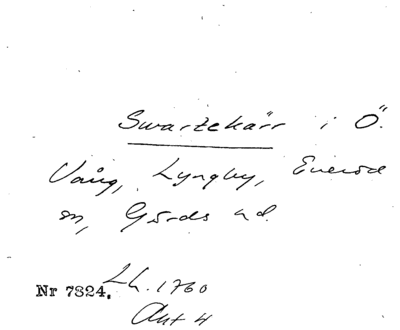 Swartekärr i Ö.
Vång, Lyngby, Everöd
sn, Gärds hd.
Nr 7324. Lh. 1760
Akt 4